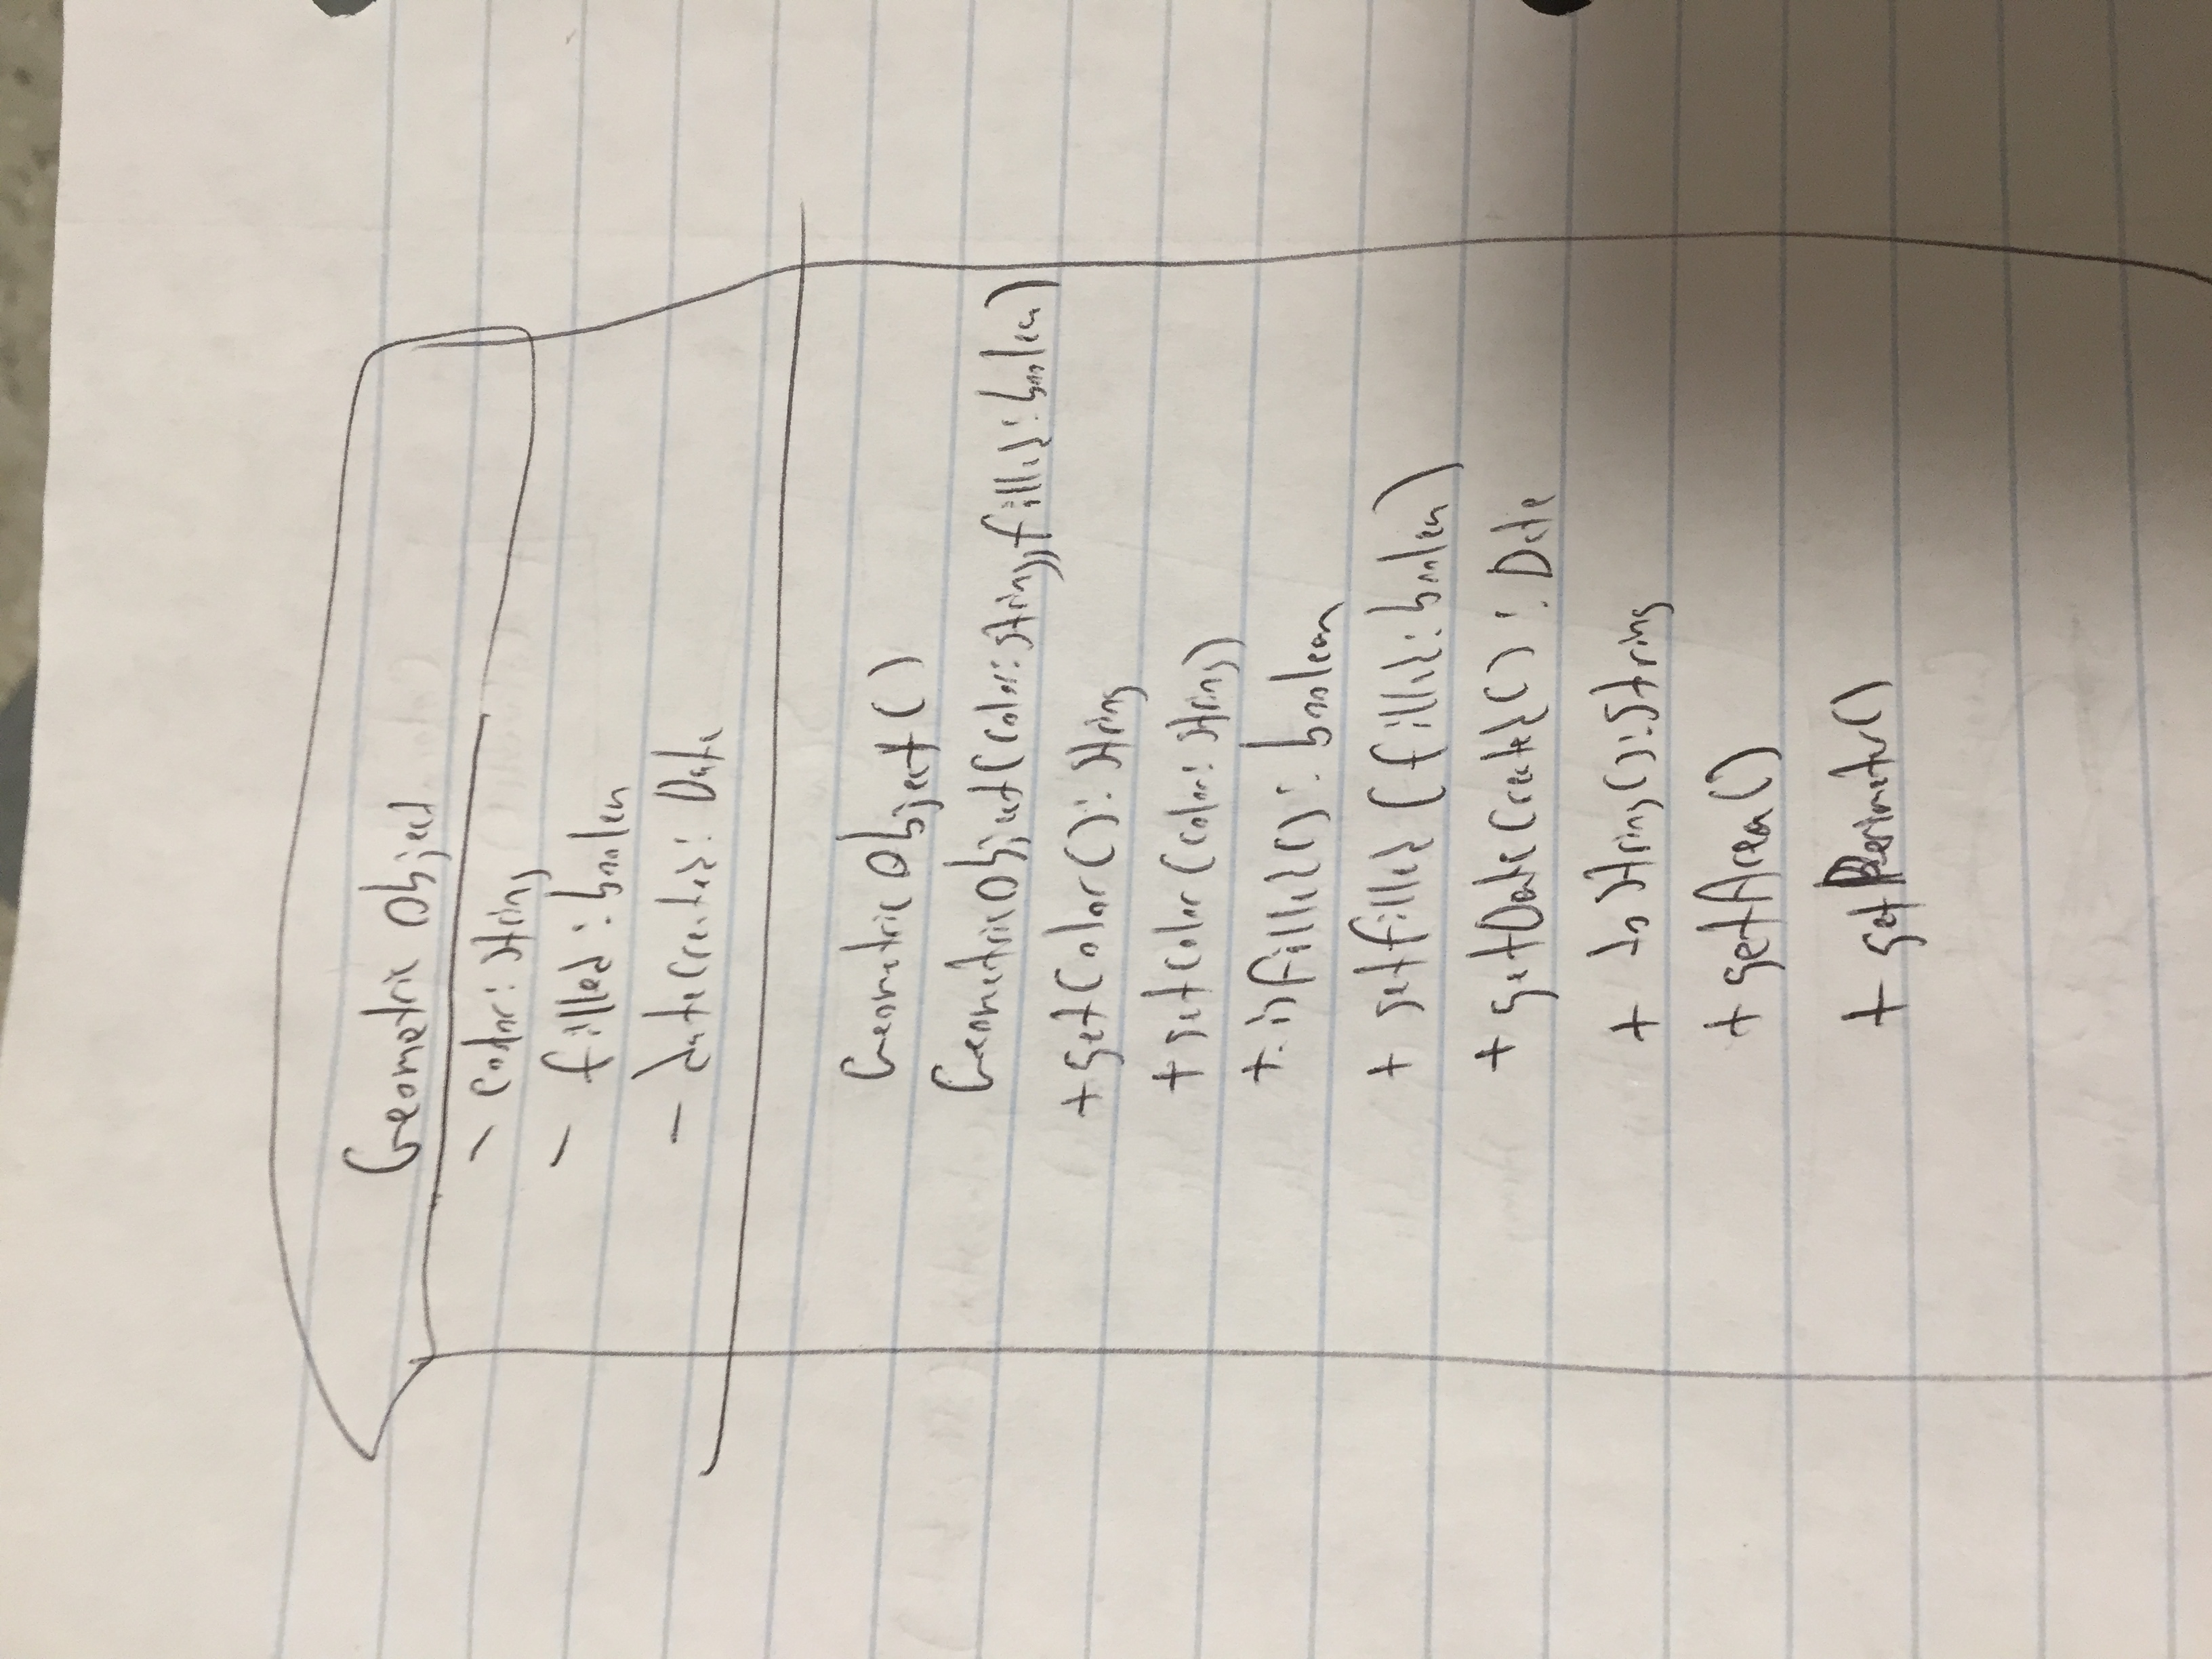 Geometric Object
- color: String
- filled: boolen
- dateCreated: Date
Geometric Object()
GeometricObject(color: String, filled: boolen)
+ getColor(): String
+ setColor(color: String)
+ isfilled(): boolean
+ setfilled (filled: boolen)
+ getDateCreated(): Date
+ toString(): String
+ getArea()
+ getPerimeter()